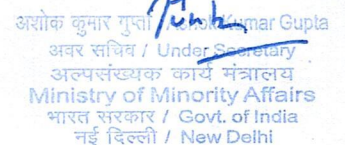 अशोक कुमार गुप्ता / Kumar Gupta
अवर सचिव / Under Secretary
अल्पसंख्यक कार्य मंत्रालय
Ministry of Minority Affairs
भारत सरकार / Govt. of India
नई दिल्ली / New Delhi